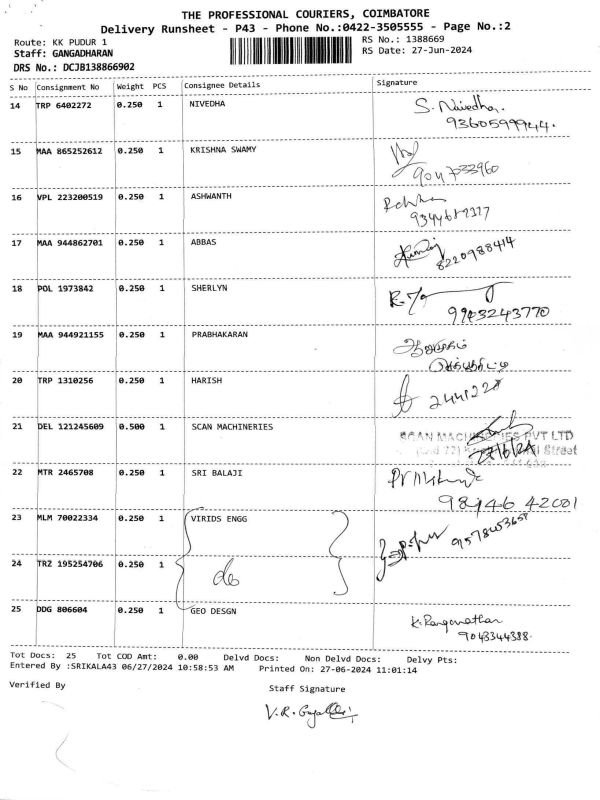 THE PROFESSIONAL COURIERS, COIMBATORE
Delivery Runsheet - P43 - Phone No.:0422-3505555 - Page No.:2
Route: KK PUDUR 1
RS No.: 1388669
Staff: GANGADHARAN
RS Date: 27-Jun-2024
DRS No.: DCJB138866902
S No Consignment No Weight PCS Consignee Details Signature
14 TRP 6402272 0.250 1 NIVEDHA S. Nivedha.
9360599944.
15 MAA 865252612 0.250 1 KRISHNA SWAMY
9047733960
16 VPL 223200519 0.250 1 ASHWANTH
17 MAA 944862701 0.250 1 ABBAS
8220988414
18 POL 1973842 0.250 1 SHERLYN
9943243770
19 MAA 944921155 0.250 1 PRABHAKARAN
20 TRP 1310256 0.250 1 HARISH
2441228
21 DEL 121245609 0.500 1 SCAN MACHINERIES SCAN MACHINERIES PVT LTD
Street
27/6/24
22 MTR 2465708 0.250 1 SRI BALAJI
98946 42001
23 MLM 70022334 0.250 1 VIRIDS ENGG
24 TRZ 195254706 0.250 1 do
25 DDG 806604 0.250 1 GEO DESGN K. Ranganathan
9043344388.
Tot Docs: 25 Tot COD Amt: 0.00 Delvd Docs: Non Delvd Docs: Delvy Pts:
Entered By :SRIKALA43 06/27/2024 10:58:53 AM Printed On: 27-06-2024 11:01:14
Verified By Staff Signature